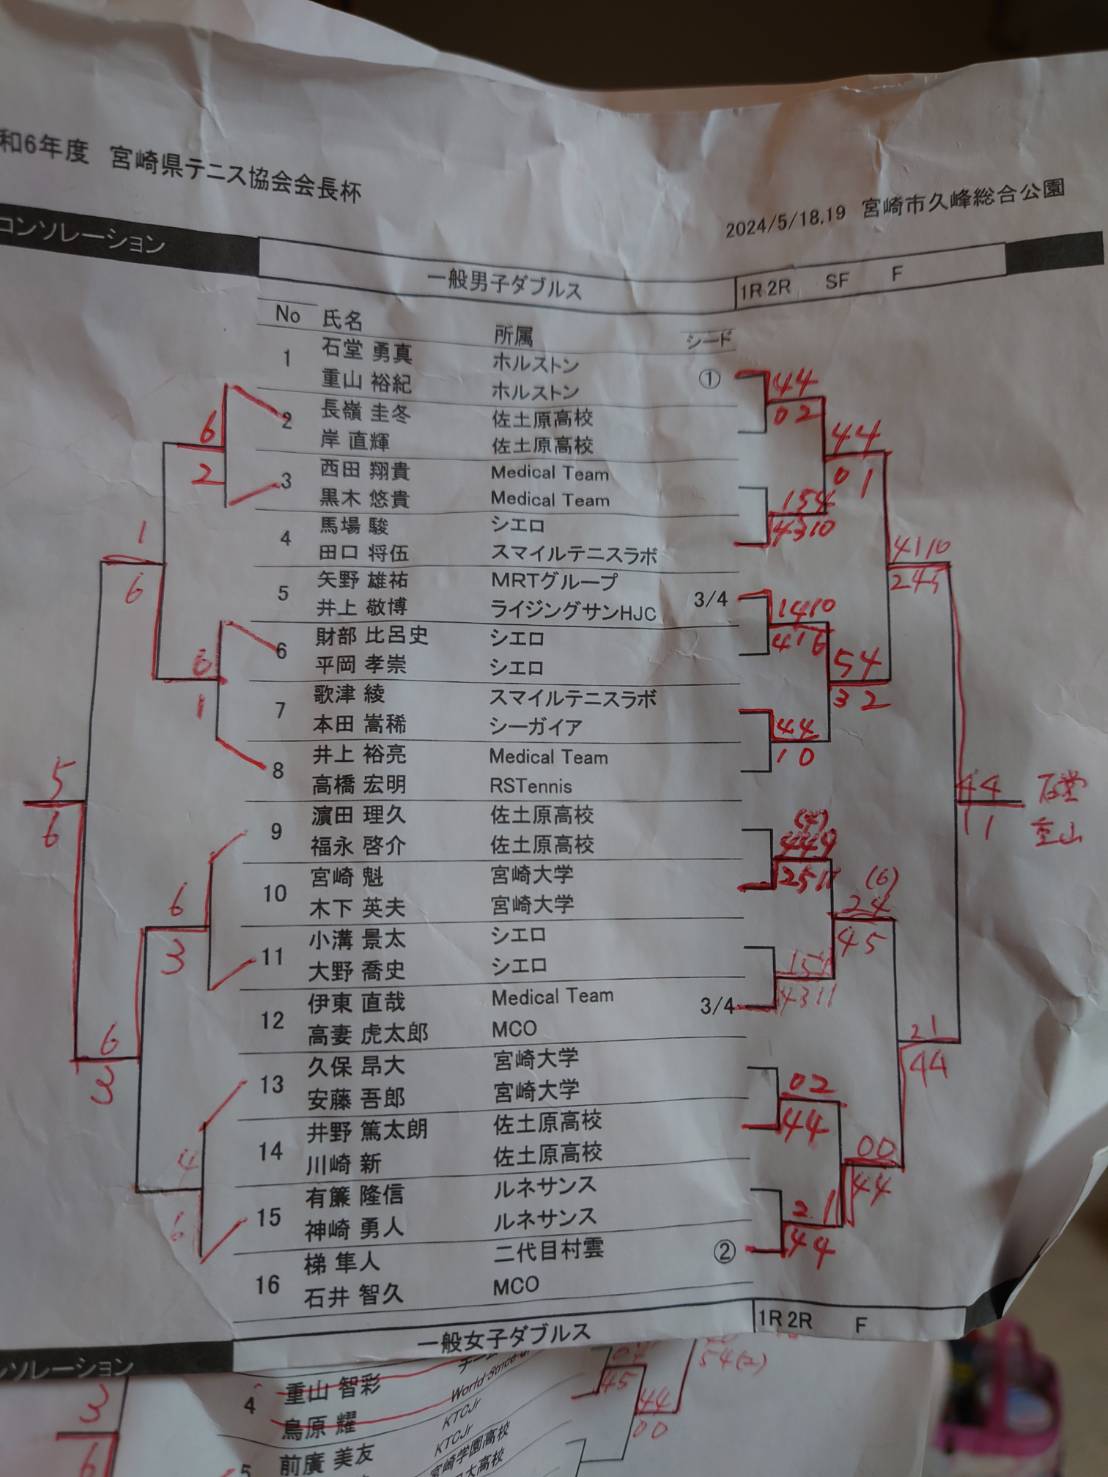 和6年度 宮崎県テニス協会会長杯
2024/5/18,19 宮崎市久峰総合公園
コンソレーション
一般男子ダブルス 1R 2R SF F
No 氏名 所属 シード
1 石堂 勇真 ホルストン ①
重山 裕紀 ホルストン
2 長嶺 圭冬 佐土原高校
岸 直輝 佐土原高校
3 西田 翔貴 Medical Team
黒木 悠貴 Medical Team
4 馬場 駿 シエロ
田口 将伍 スマイルテニスラボ
5 矢野 雄祐 MRTグループ 3/4
井上 敬博 ライジングサンHJC
6 財部 比呂史 シエロ
平岡 孝崇 シエロ
7 歌津 綾 スマイルテニスラボ
本田 嵩稀 シーガイア
8 井上 裕亮 Medical Team
高橋 宏明 RSTennis
9 濵田 理久 佐土原高校
福永 啓介 佐土原高校
10 宮崎 魁 宮崎大学
木下 英夫 宮崎大学
11 小溝 景太 シエロ
大野 喬史 シエロ
12 伊東 直哉 Medical Team 3/4
高妻 虎太郎 MCO
13 久保 昂大 宮崎大学
安藤 吾郎 宮崎大学
14 井野 篤太朗 佐土原高校
川崎 新 佐土原高校
15 有簾 隆信 ルネサンス
神崎 勇人 ルネサンス
16 梯 隼人 二代目村雲 ②
石井 智久 MCO
6
2
1
6
1
5
6
6
3
6
3
4
6
44
02
44
01
154
4310
1410
416
54
32
44
10
4110
44
11
石堂
重山
(6)
24
45
02
44
00
44
21
44
21
44
一般女子ダブルス 1R 2R F
ンソレーション
4 重山 智彩
鳥原 耀 KTCJr
5 前廣 美友 KTCJr
宮崎学園高校
3
6
45
44
00
54(2)